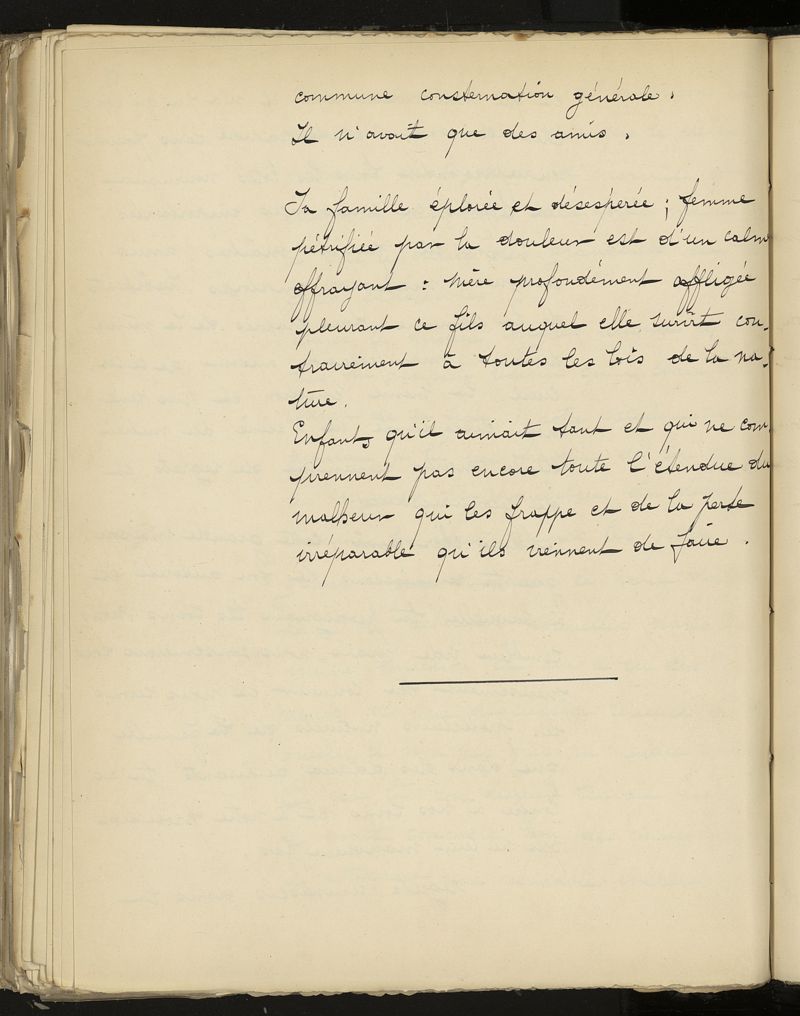 commune consternation générale.
Il n'avait que des amis.
Sa famille éplorée et désespérée ; femme
pétrifiée par la douleur est d'un calme
effrayant : mère profondément affligée
pleurant ce fils auquel elle survit con-
trairement à toutes les lois de la na-
ture.
Enfants qu'il aimait tant et qui ne com-
prennent pas encore toute l'étendue du
malheur qui les frappe et de la perte
irréparable qu'ils viennent de faire.